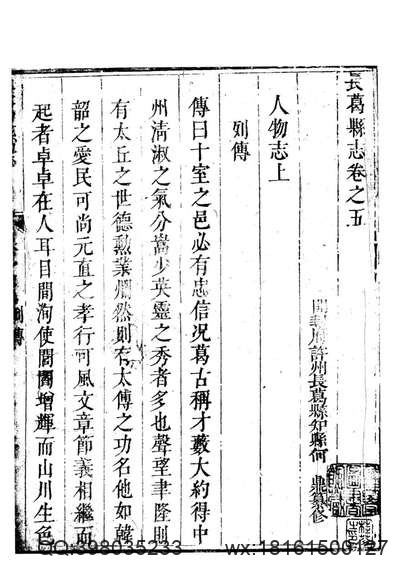 長葛縣志卷之五
開封府許州長葛縣知縣何 鼎纂修
人物志上
列傳
傳曰十室之邑必有忠信况葛古稱才藪大約得中
州清淑之氣分嵩少英靈之秀者多也聲望聿隆則
有太丘之世德勲業爛然則有太傅之功名他如韓
韶之愛民可尚元直之孝行可風文章節義相繼而
起者卓卓在人耳目間洵使閭閻增輝而山川生色
列傳
QQ:398035233
wx:18161500727